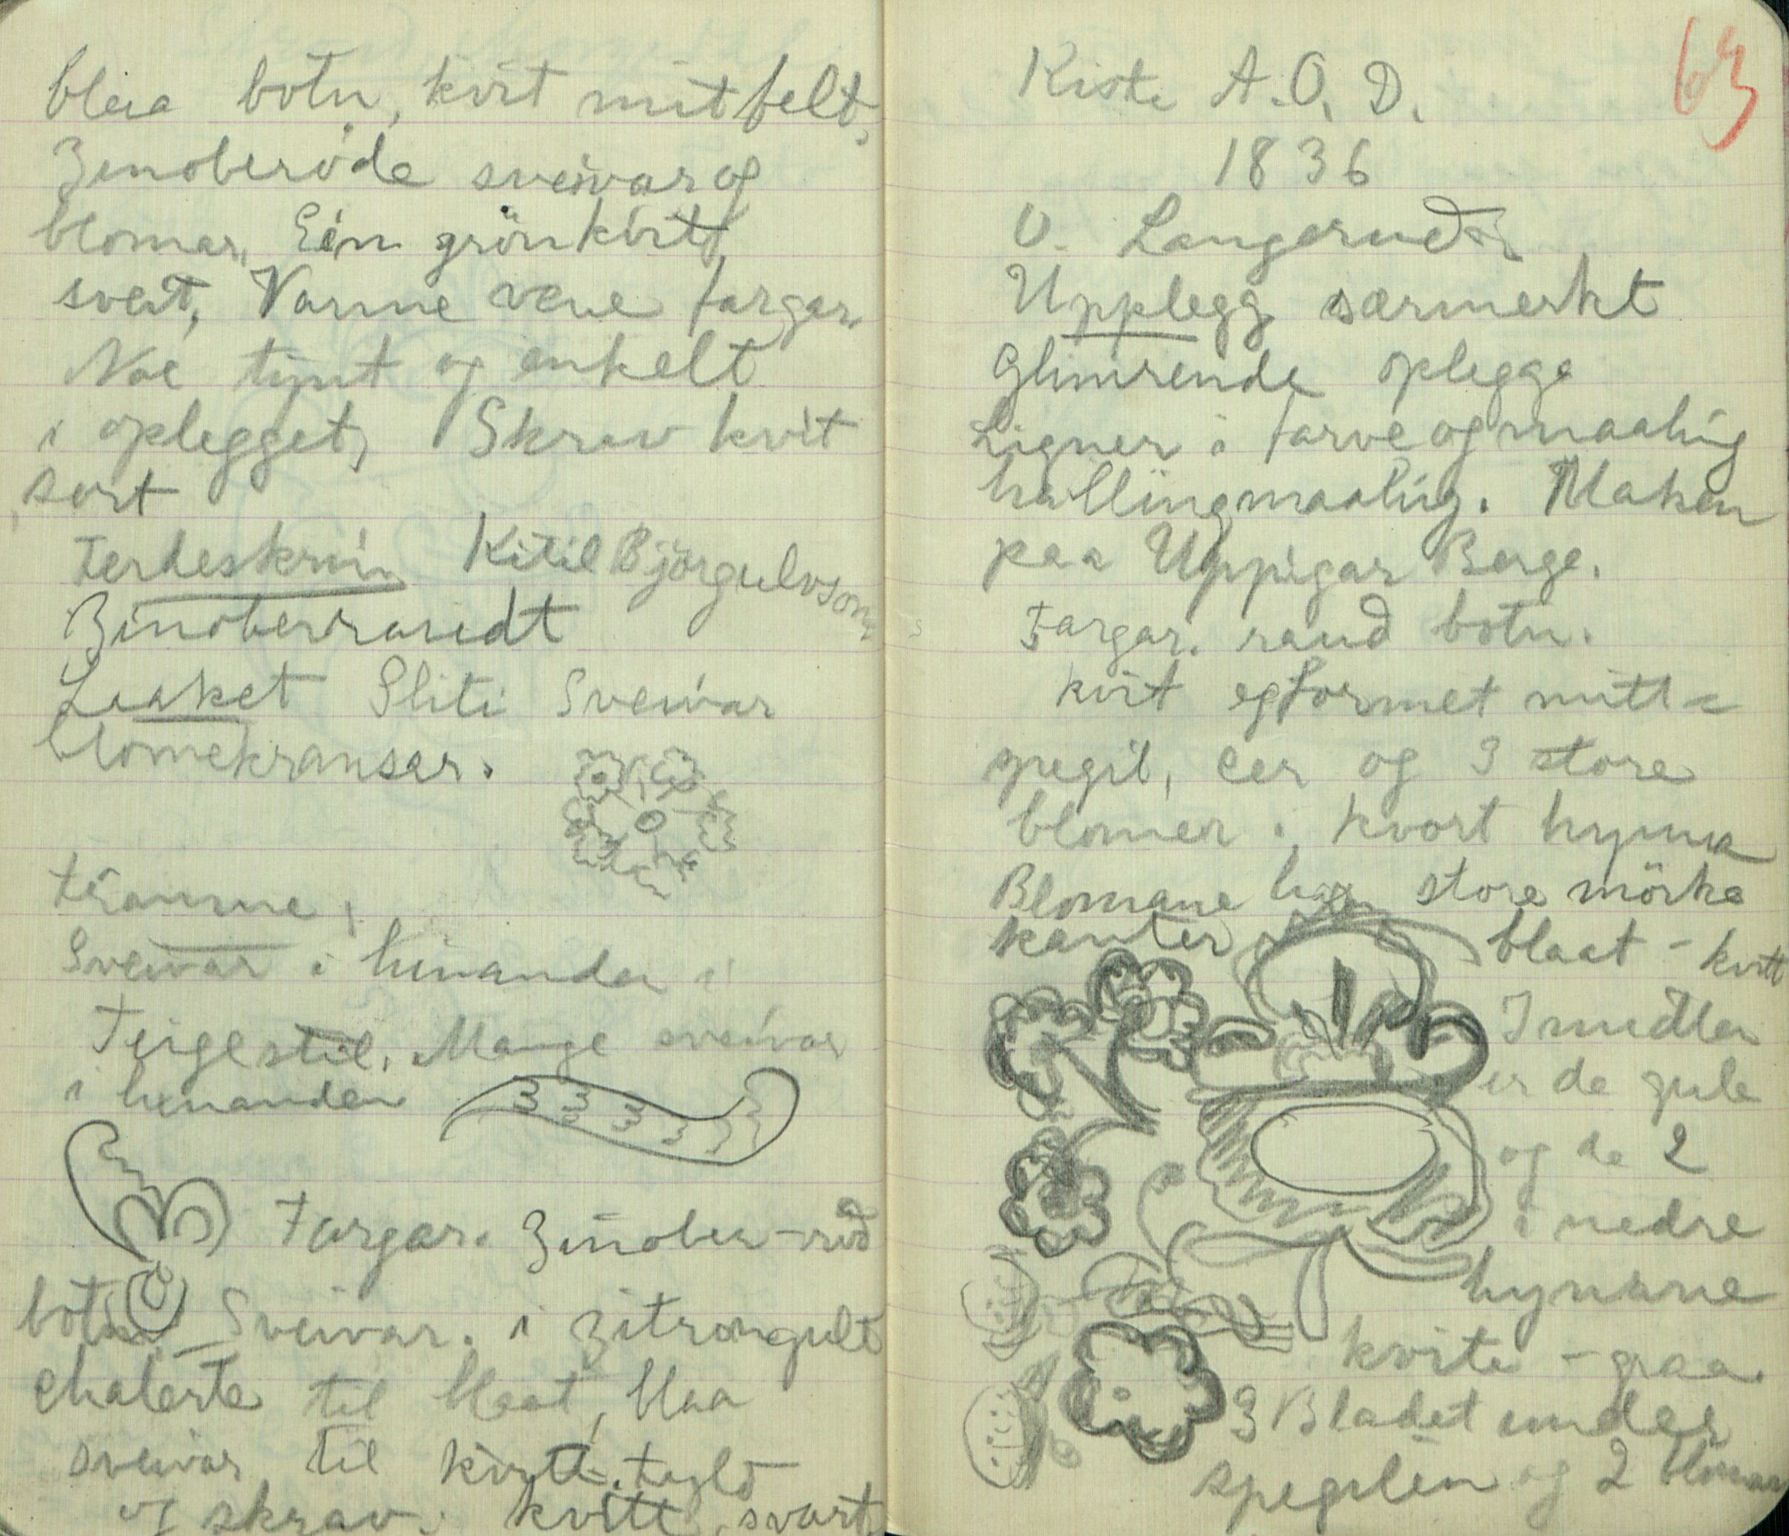 blaa botn, kvit mitfelt,
Zinoberøde sveivar og
blomar. Ein grönkvit
sveit, Varme vene fargar.
Noe tynt og enkelt
i oplegget, Skrav kvit
sort
Ferdeskrin Kitil Björgulvson
Zinoberraudt
Laaket Sliti Sveivar
blomekransar.
Framme,
Sveivar i hinanden i
Teigestil. Mange sveivar
i hinanden
Fargar. Zinober-rød
botn. Sveivar. i zitrongult
chaterte til blaat, blaa
sveivar til kvitt. fyld
og skrav. kvitt, svart
63
Kiste A.O.D.
1836
O. Langerud
Upplegg særmerkt
Glimrende oplegge
Ligner i farve og maaling
hallingmaaling. Maken
paa Uppigar Berge.
Fargar. raud botn.
kvit egformet mitt-
spegil, eer og 3 store
blomer i kvort hynna
Blomane store mörke
kanter blaat - kvitt
I midten
er de gule
og de 2
i nedre
hynnane
kvite - graa
3 Bladet under
spegilen og 2 blomar